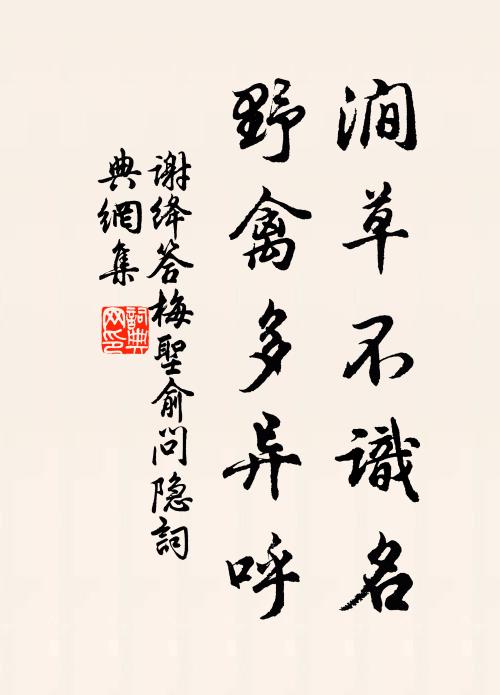 澗草不識名
野禽多异呼
谢绛答梅聖俞问隐詞
典網集
詞典
网印